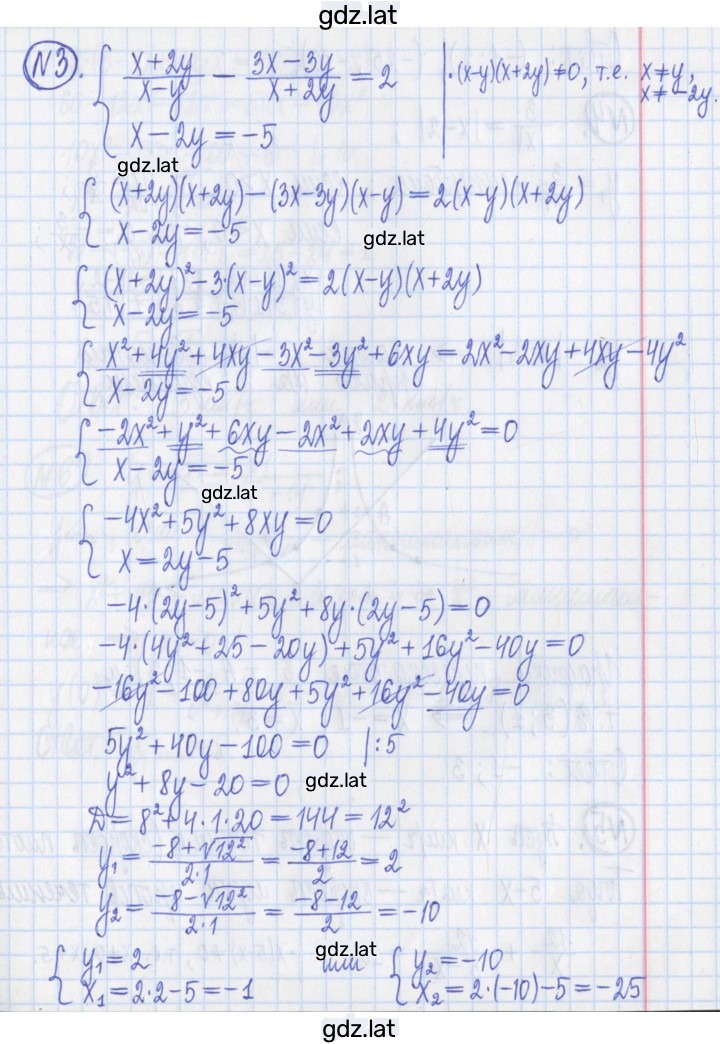 gdz.lat
N3. { (x+2y)/(x−y) − (3x−3y)/(x+2y) = 2 | ·(x−y)(x+2y)≠0, т.е. x≠y,
x≠−2y.
x−2y=−5
gdz.lat
{ (x+2y)(x+2y)−(3x−3y)(x−y)=2(x−y)(x+2y)
x−2y=−5
gdz.lat
{ (x+2y)²−3·(x−y)²=2(x−y)(x+2y)
x−2y=−5
{ x²+4y²+4xy−3x²−3y²+6xy=2x²−2xy+4xy−4y²
x−2y=−5
{ −2x²+y²+6xy−2x²+2xy+4y²=0
x−2y=−5
gdz.lat
{ −4x²+5y²+8xy=0
x=2y−5
−4·(2y−5)²+5y²+8y·(2y−5)=0
−4·(4y²+25−20y)+5y²+16y²−40y=0
−16y²−100+80y+5y²+16y²−40y=0
5y²+40y−100=0 |:5
y²+8y−20=0
gdz.lat
D=8²+4·1·20=144=12²
y₁= (−8+√12²)/(2·1) = (−8+12)/2 = 2
y₂= (−8−√12²)/(2·1) = (−8−12)/2 = −10
{ y₁=2 или { y₂=−10
x₁=2·2−5=−1 x₂=2·(−10)−5=−25
gdz.lat